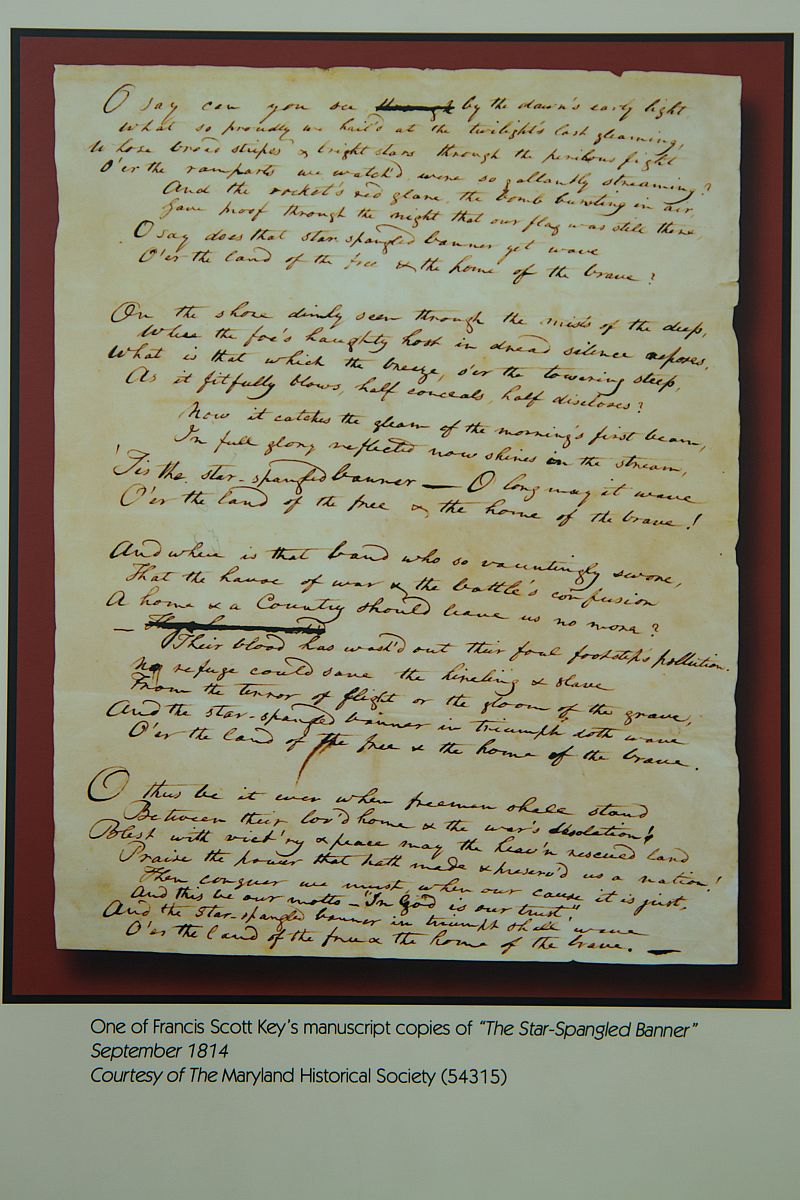 O say can you see through by the dawn's early light,
What so proudly we hail'd at the twilight's last gleaming,
Whose broad stripes & bright stars through the perilous fight
O'er the ramparts we watch'd, were so gallantly streaming?
And the rocket's red glare, the bomb bursting in air,
Gave proof through the night that our flag was still there,
O say does that star-spangled banner yet wave
O'er the land of the free & the home of the brave?
On the shore dimly seen through the mists of the deep,
Where the foe's haughty host in dread silence reposes,
What is that which the breeze, o'er the towering steep,
As it fitfully blows, half conceals, half discloses?
Now it catches the gleam of the morning's first beam,
In full glory reflected now shines in the stream,
'Tis the star-spangled banner — O long may it wave
O'er the land of the free & the home of the brave!
And where is that band who so vauntingly swore,
That the havoc of war & the battle's confusion
A home & a Country should leave us no more?
—
Their blood has wash'd out their foul footstep's pollution.
No refuge could save the hireling & slave
From the terror of flight or the gloom of the grave,
And the star-spangled banner in triumph doth wave
O'er the land of the free & the home of the brave.
O thus be it ever when freemen shall stand
Between their lov'd home & the war's desolation!
Blest with vict'ry & peace may the heav'n rescued land
Praise the power that hath made & preserv'd us a nation!
Then conquer we must, when our cause it is just,
And this be our motto — "In God is our trust,"
And the star-spangled banner in triumph shall wave
O'er the land of the free & the home of the brave. —
One of Francis Scott Key's manuscript copies of "The Star-Spangled Banner"
September 1814
Courtesy of The Maryland Historical Society (54315)